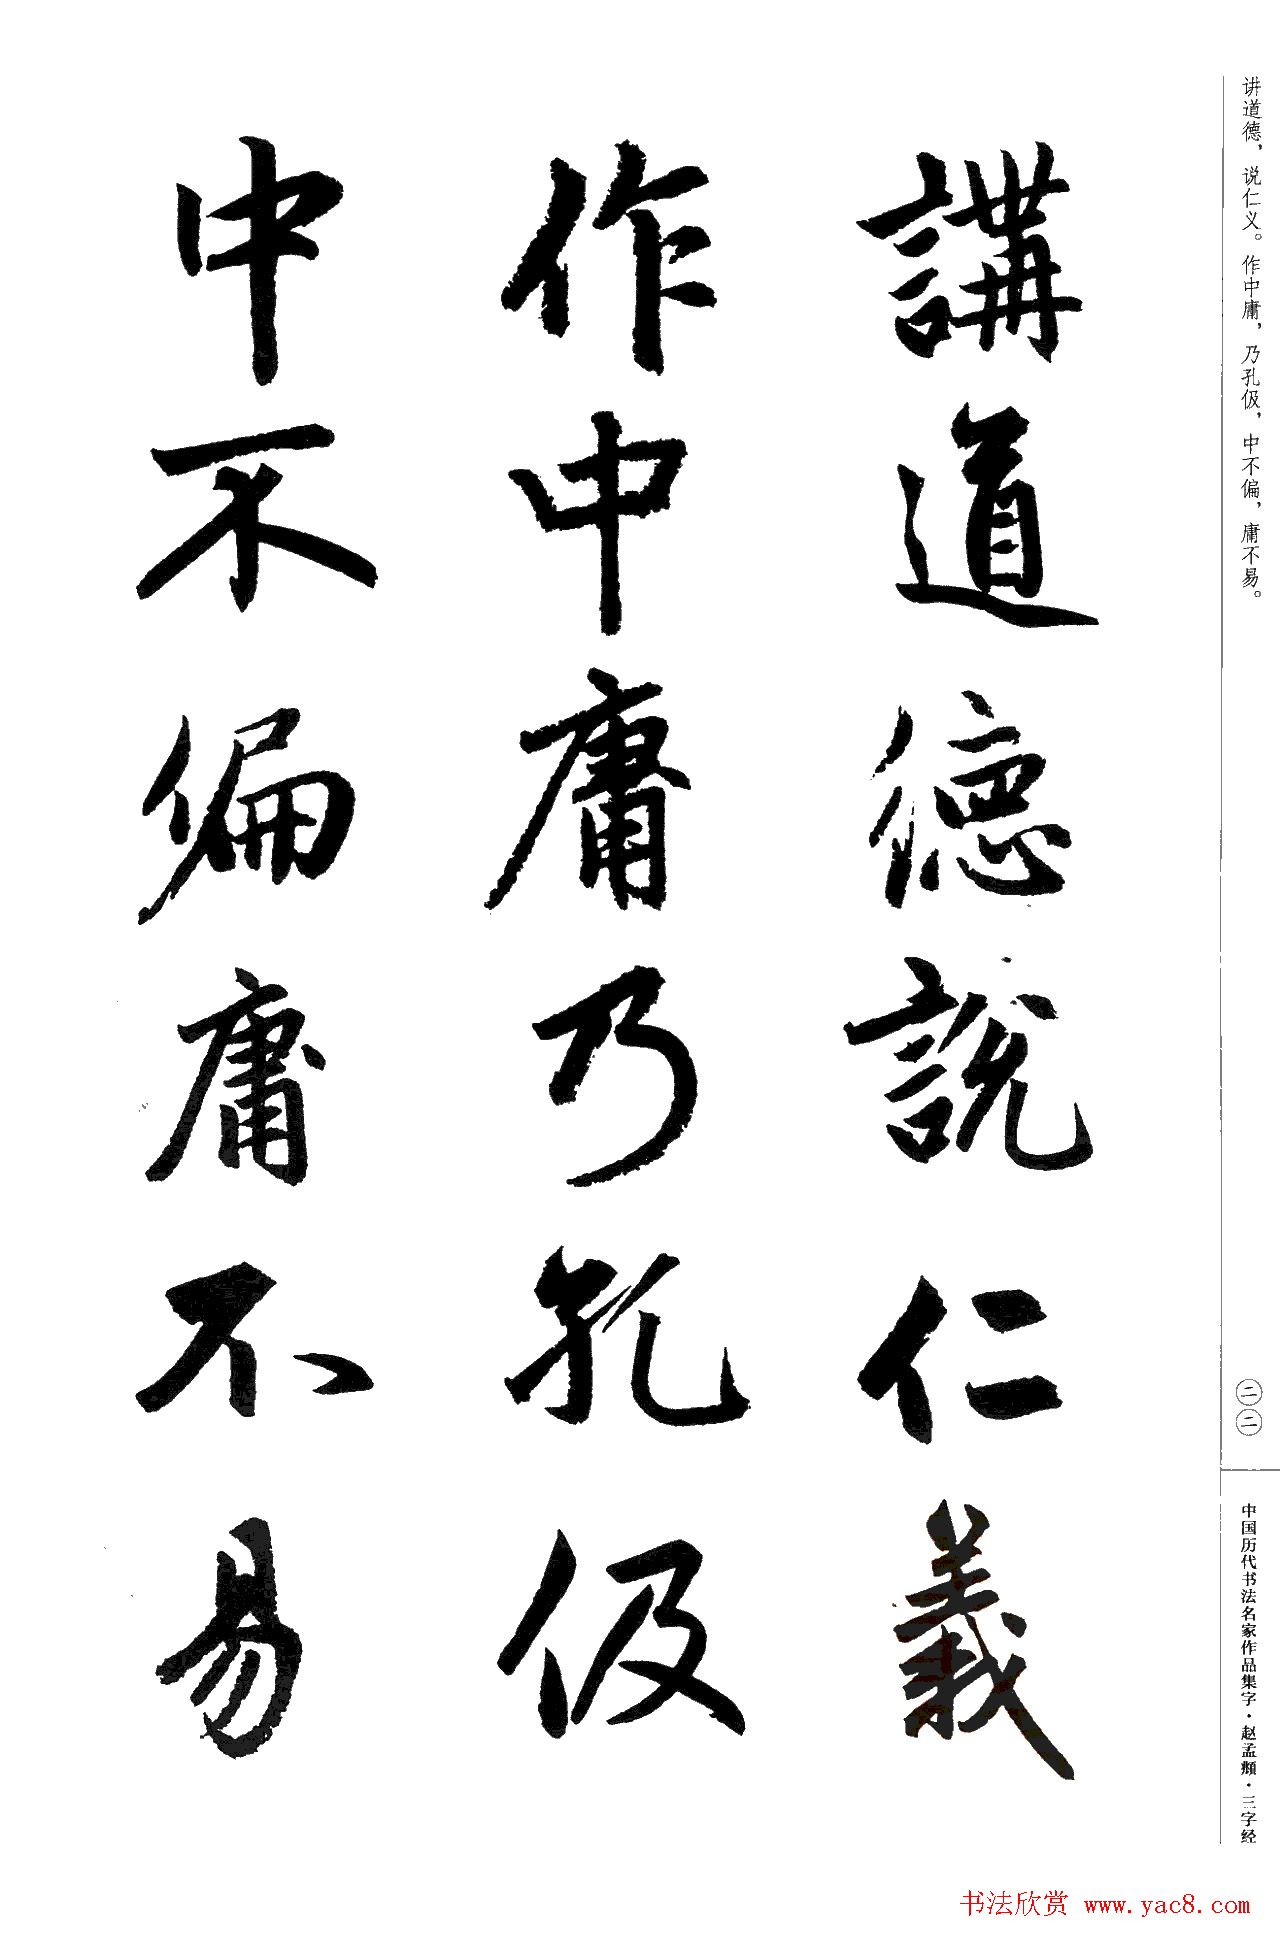 讲道德，说仁义。作中庸，乃孔伋，中不偏，庸不易。
講道德說仁義
作中庸乃孔伋
中不偏庸不易
二二
中国历代书法名家作品集字·赵孟頫·三字经
书法欣赏 www.yac8.com